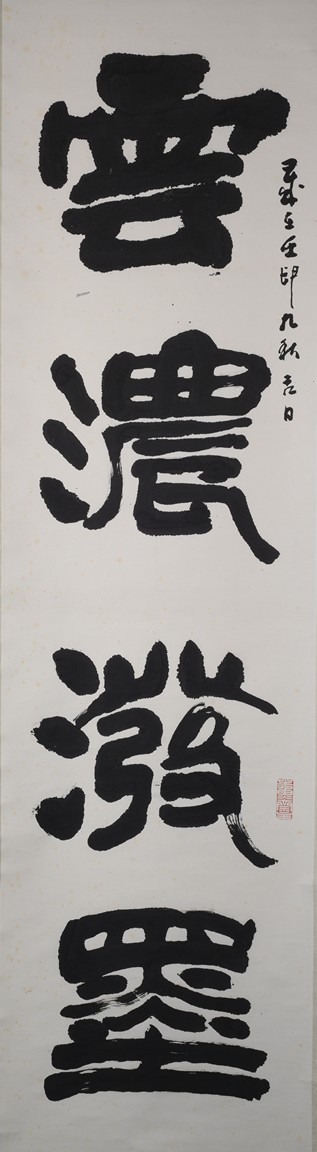 歲在卯九秋吉日
雲濃潑墨